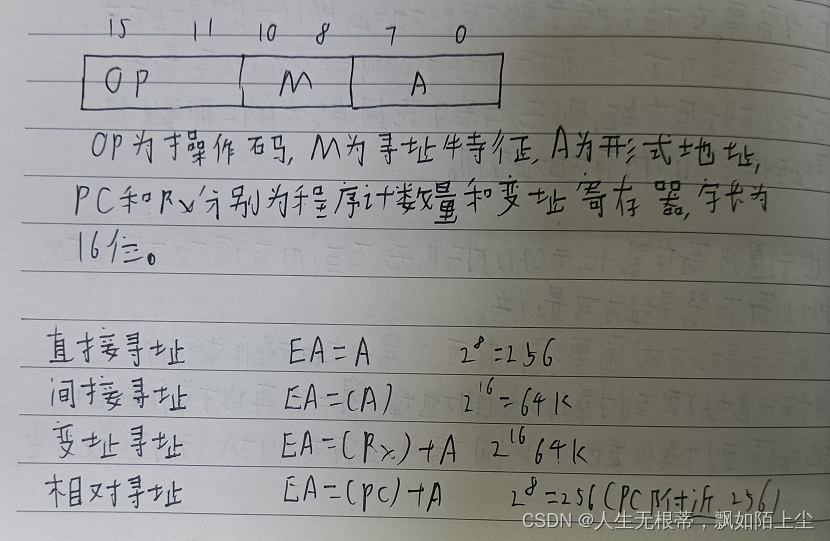 15 11 10 8 7 0
OP M A
OP为操作码,M为寻址特征,A为形式地址,
PC和Rx分别为程序计数量和变址寄存器,字长为
16位。
直接寻址 EA=A 2⁸=256
间接寻址 EA=(A) 2¹⁶=64K
变址寻址 EA=(Rx)+A 2¹⁶ 64K
相对寻址 EA=(PC)+A 2⁸=256(PC附近256)
CSDN @人生无根蒂,飘如陌上尘